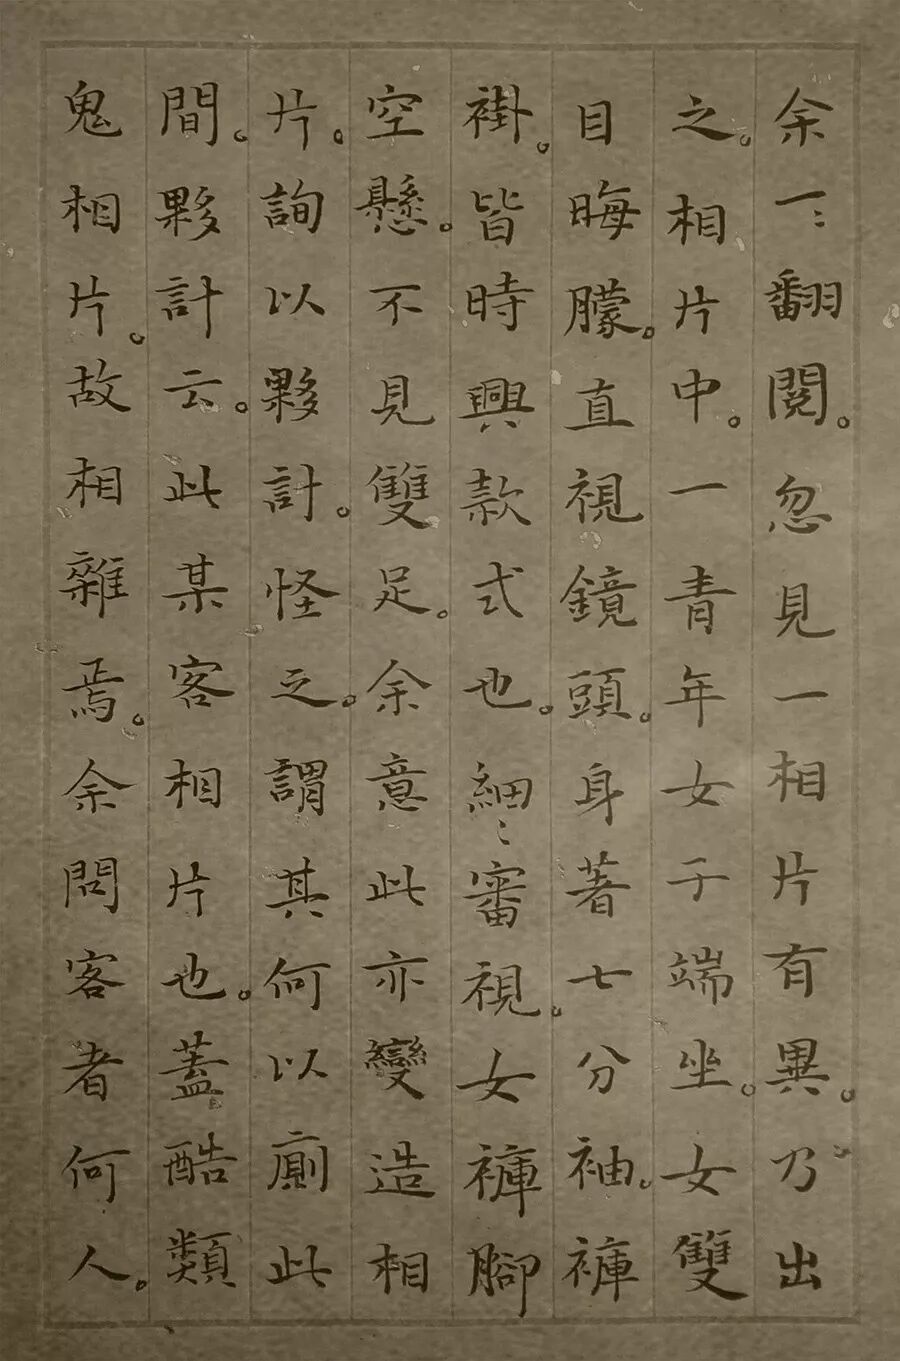 余一〻翻閱。忽見一相片有異。乃出
之。相片中。一青年女子端坐。女雙
目晦朦。直視鏡頭。身著七分袖。褲
褂。皆時興款式也。細〻審視。女褲腳
空懸。不見雙足。余意此亦變造相
片。詢以夥計。怪之。謂其何以廁此
間。夥計云。此某客相片也。蓋酷類
鬼相片。故相雜焉。余問客者何人。